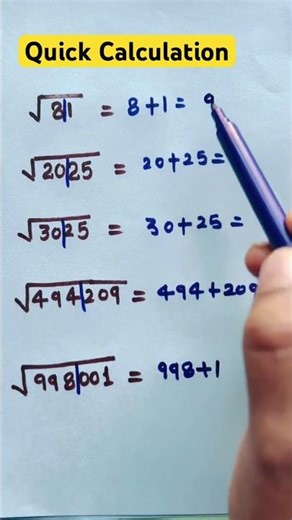 Quick Calculation
√81 = 8+1= 9
√2025 = 20+25=
√3025 = 30+25=
√494209 = 494+209
√998001 = 998+1